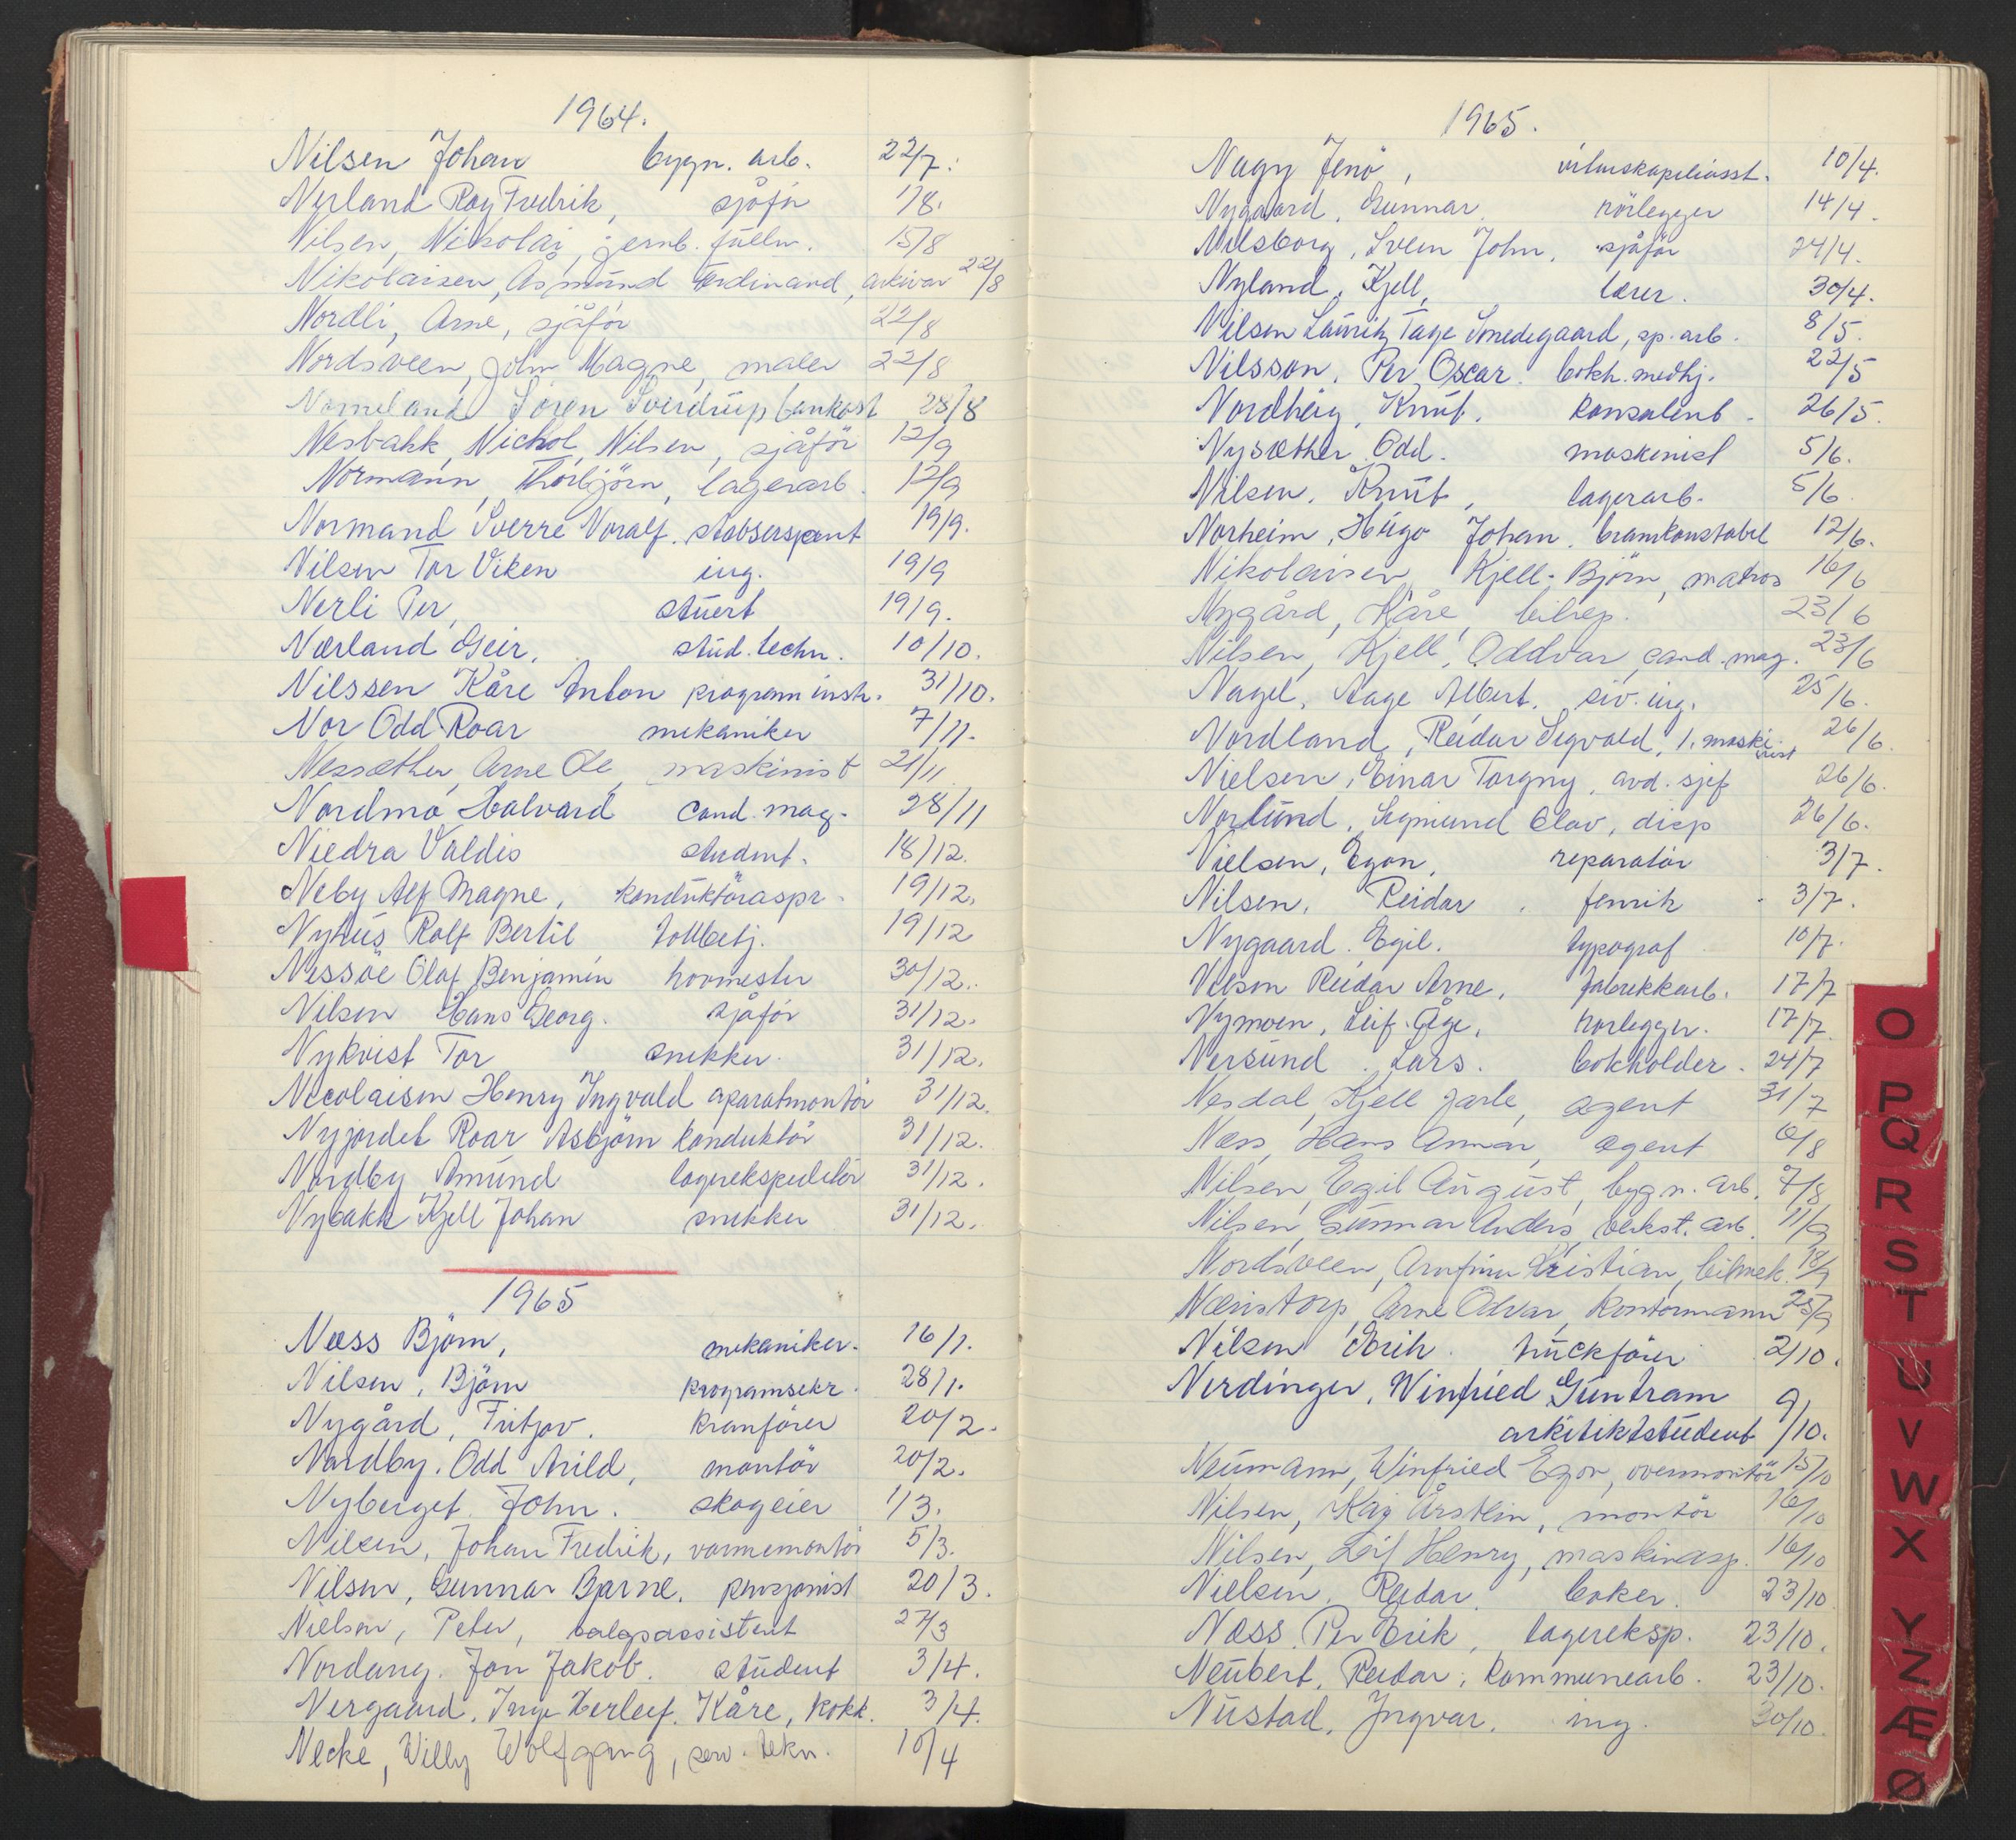 1964.
Nilsen Johan bygn. arb. 22/7.
Nerland Roy Fredrik, sjåför 1/8.
Nilsen, Nikolai, jernb. fullm. 15/8
Nikolaisen, Åsmund Ferdinand, arkivar 22/8
Nordli, Arne, sjåför 22/8
Nordsveen, John Magne, maler 22/8
Nomeland Sören Sverdrup bankass 28/8
Nesbakk, Nichol, Nilsen, sjåför 12/9
Normann, Thorbjörn, lagerarb. 12/9
Normand Sverre Noralf. stabsersjent 19/9.
Nilsen Tor Viken ing. 19/9
Nerli Per, stuert 19/9.
Nærland Geir, stud. techn. 10/10.
Nilssen Kåre Anton program insp. 31/10.
Nor Odd Roar mekaniker 7/11.
Nessæther, Arne Ole, maskinist 21/11
Nordmo, Halvard cand. mag. 28/11
Niedra Valdis student. 18/12.
Neby Alf Magne, konduktöraspr. 19/12.
Nyhus Rolf Bertil tollbetj. 19/12
Nessöe Olaf Benjamin hovmester 30/12.
Nilsen Hans Georg. sjåför 31/12.
Nykvist Tor snekker. 31/12.
Nicolaisen Henry Ingvald aparatmontör 31/12.
Nyjordet Roar Asbjörn konduktör 31/12.
Nordby Amund lagerekspeditör 31/12.
Nybakk Kjell Johan snekker 31/12.
1965
Næss Björn, mekaniker. 16/1.
Nilsen, Björn programsekr. 28/1.
Nygård, Fritjov. kranförer 20/2.
Nordby. Odd Arild, montör 20/2.
Nyberget. John. skogeier 1/3.
Nilsen, Johan Fredrik, varmemontör 5/3.
Nilsen, Gunnar Bjarne. pensjonist 20/3.
Nielsen, Peter, salgsassistent 27/3
Nordang. Jon Jakob. student 3/4.
Nergaard. Inge Herleif. Kåre, kokk. 3/4.
Necke, Willy Wolfgang, serv. tekn. 10/4
1965.
Nagy Jenö, 10/4.
Nygaard, Gunnar. rörlegger 14/4.
Nilsborg, Svein John. sjåför 24/4.
Nyland, Kjell, lærer. 30/4.
Nilsen Lauritz Tage Smedegaard, sp. arb. 8/5.
Nilsson, Per Oscar. bokh. medhj. 22/5
Nordheig, Knut. konsulent. 26/5.
Nysæther Odd. maskinist 5/6.
Nilsen, Knut, lagerarb. 5/6.
Norheim, Hugo Johan. brannkonstabel 12/6.
Nikolaisen, Kjell-Björn, matros 16/6
Nygård, Kåre, bilrep. 23/6
Nilsen, Kjell, Oddvar, cand. mag. 23/6
Nagel, Aage Albert. siv. ing. 25/6.
Nordland, Reidar Sigvald, 1. maskinist 26/6.
Nielsen, Einar Torgny, avd. sjef 26/6.
Norlund, Sigmund Olav, disp 26/6.
Nielsen, Egon, reparatör 3/7.
Nilsen, Reidar. fenrik 3/7.
Nygaard. Egil. typograf 10/7.
Nilsen Reidar Arne. fabrikkarb. 17/7
Nymoen, Leif-Åge. rörlegger. 17/7.
Nersund. Lars. bokholder. 24/7
Nesdal, Kjell Jarle, agent 31/7
Næss, Hans Annar, agent 6/8
Nilsen, Egil August, bygn. arb. 7/8
Nilsen, Gunnar Anders, verkst. arb. 11/9
Nordsveen, Arnfinn Kristian, bilmek. 18/9
Arne Odvar, kontormann 25/9
Nilsen Erik. truckförer 2/10.
Nerdinger, Winfried Guntram
arkitektstudent 9/10.
Neumann, Winfried Egon, overmontör 15/10
Nilsen, Kay Årstein, montör 16/10
Nilsen, Leif Henry, maskinasp. 16/10
Nielsen, Reidar. baker. 23/10.
Næss, Per Erik, lagereksp. 23/10.
Neubert, Reidar, kommunearb. 23/10.
Nustad, Ingvar. ing. 30/10.
O
P
Q
R
S
T
U
V
W
X
Y
Z
Æ
Ø